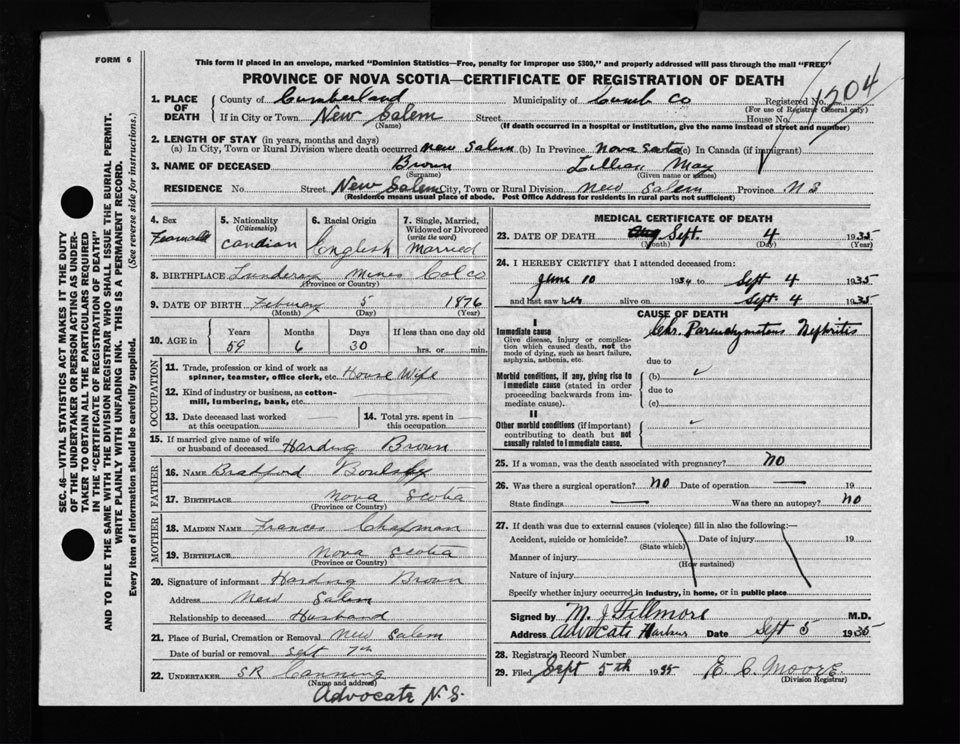 FORM 6
This form if placed in an envelope, marked "Dominion Statistics—Free, penalty for improper use $300," and properly addressed will pass through the mail "FREE"
PROVINCE OF NOVA SCOTIA—CERTIFICATE OF REGISTRATION OF DEATH
1204
1. PLACE OF DEATH County of Cumberland Municipality of Cumb Co Registered No.
(For use of Registrar General only)
If in City or Town New Salem Street House No.
(Name) (If death occurred in a hospital or institution, give the name instead of street and number)
2. LENGTH OF STAY (in years, months and days)
(a) In City, Town or Rural Division where death occurred New Salem (b) In Province Nova Scotia (c) In Canada (if immigrant)
3. NAME OF DECEASED Brown Lillian May
(Surname) (Given name or names)
RESIDENCE No. Street New Salem City, Town or Rural Division New Salem Province N S
(Residence means usual place of abode. Post Office Address for residents in rural parts not sufficient)
4. Sex
5. Nationality (Citizenship) Candian
6. Racial Origin English
7. Single, Married, Widowed or Divorced (write the word) Married
8. BIRTHPLACE Mines Col co
(Province or Country)
9. DATE OF BIRTH 5 1876
(Month) (Day) (Year)
10. AGE in Years Months Days If less than one day old
59 6 30 hrs. or min.
OCCUPATION
11. Trade, profession or kind of work as spinner, teamster, office clerk, etc. House Wife
12. Kind of industry or business, as cotton-mill, lumbering, bank, etc.
13. Date deceased last worked at this occupation
14. Total yrs. spent in this occupation
15. If married give name of wife or husband of deceased Harding Brown
FATHER
16. NAME Bradford
17. BIRTHPLACE Nova Scotia
(Province or Country)
MOTHER
18. MAIDEN NAME Frances Chapman
19. BIRTHPLACE Nova Scotia
(Province or Country)
20. Signature of informant Harding Brown
Address New Salem
Relationship to deceased Husband
21. Place of Burial, Cremation or Removal New Salem
Date of burial or removal Sept 7th
22. UNDERTAKER S R Canning
(Name and address)
Advocate N.S.
MEDICAL CERTIFICATE OF DEATH
23. DATE OF DEATH Sept. 4 1935
(Month) (Day) (Year)
24. I HEREBY CERTIFY that I attended deceased from:
June 10 1934 to Sept 4 1935
and last saw her alive on Sept 4 1935
CAUSE OF DEATH
I
Immediate cause Chr. Parenchymatous Nephritis
Give disease, injury or complication which caused death, not the mode of dying, such as heart failure, asphyxia, asthenia, etc.
due to
Morbid conditions, if any, giving rise to immediate cause (stated in order proceeding backwards from immediate cause).
(b)
due to
(c)
II
Other morbid conditions (if important) contributing to death but not causally related to immediate cause.
25. If a woman, was the death associated with pregnancy? NO
26. Was there a surgical operation? NO Date of operation — 19
State findings — Was there an autopsy? NO
27. If death was due to external causes (violence) fill in also the following:—
Accident, suicide or homicide? Date of injury 19
(State which)
Manner of injury
(How sustained)
Nature of injury
Specify whether injury occurred in industry, in home, or in public place
Signed by M. J Fillmore M.D.
Address Advocate Harbour Date Sept 5 1935
28. Registrar's Record Number
29. Filed Sept 5th 1935 E. C. Moore
(Division Registrar)
SEC. 46—VITAL STATISTICS ACT MAKES IT THE DUTY
OF THE UNDERTAKER OR PERSON ACTING AS UNDER-
TAKER TO OBTAIN ALL THE PARTICULARS REQUIRED
IN THE "CERTIFICATE OF REGISTRATION OF DEATH"
AND TO FILE THE SAME WITH THE DIVISION REGISTRAR WHO SHALL ISSUE THE BURIAL PERMIT.
WRITE PLAINLY WITH UNFADING INK. THIS IS A PERMANENT RECORD.
Every item of information should be carefully supplied. (See reverse side for instructions.)